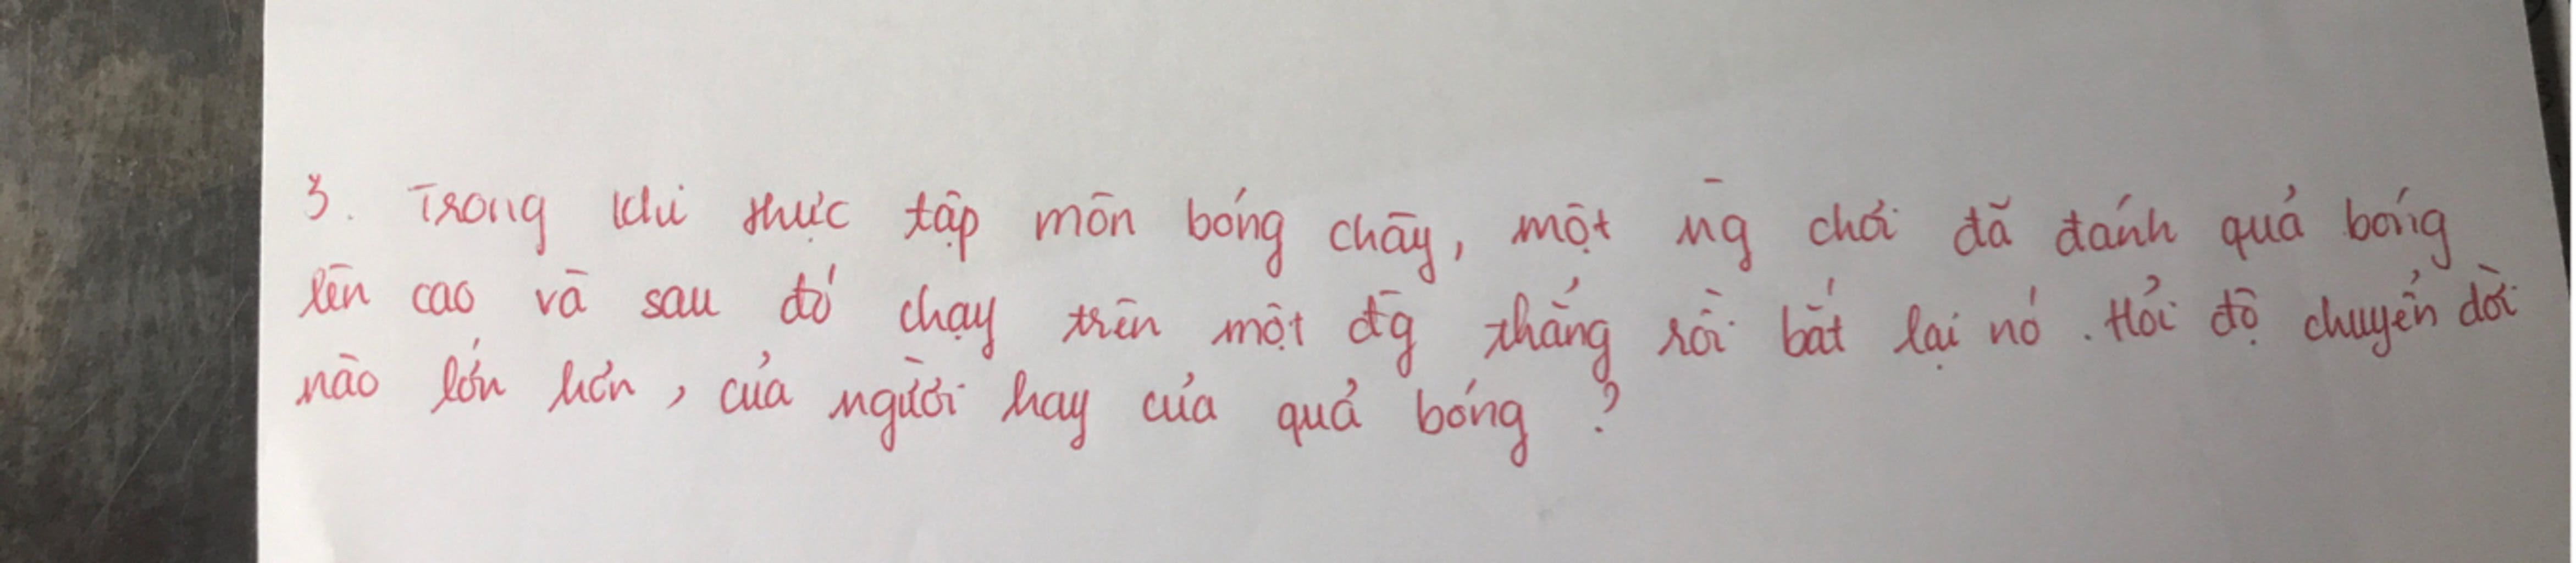 3. Trong khi thực tập môn bóng chày, một n̄g chơi đã đánh quả bóng
lên cao và sau đó chạy trên một đ̄g thẳng rồi bắt lại nó. Hỏi độ chuyển dời
nào lớn hơn, của người hay của quả bóng?